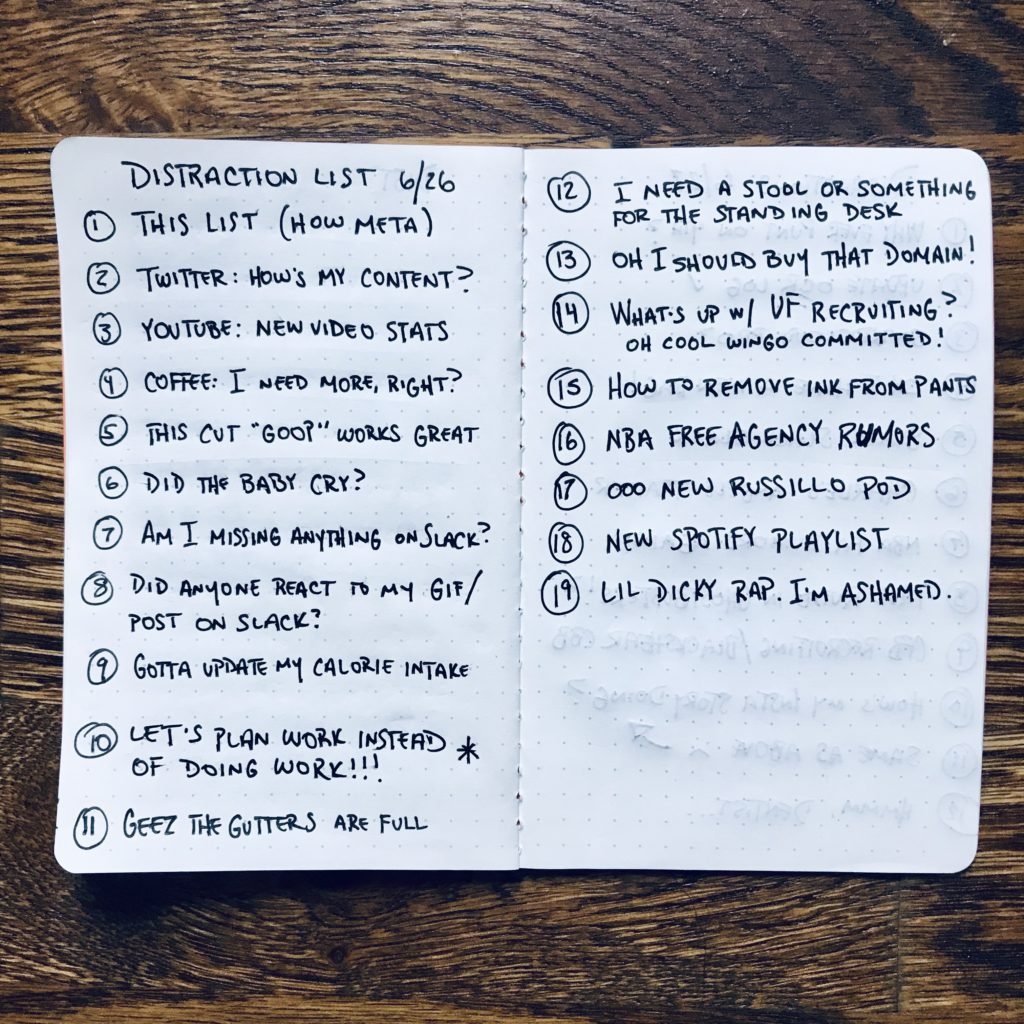 DISTRACTION LIST 6/26
1 THIS LIST (HOW META)
2 TWITTER: HOW'S MY CONTENT?
3 YOUTUBE: NEW VIDEO STATS
4 COFFEE: I NEED MORE, RIGHT?
5 THIS CUT "GOOP" WORKS GREAT
6 DID THE BABY CRY?
7 AM I MISSING ANYTHING ON SLACK?
8 DID ANYONE REACT TO MY GIF/
POST ON SLACK?
9 GOTTA UPDATE MY CALORIE INTAKE
10 LET'S PLAN WORK INSTEAD *
OF DOING WORK!!!
11 GEEZ THE GUTTERS ARE FULL
12 I NEED A STOOL OR SOMETHING
FOR THE STANDING DESK
13 OH I SHOULD BUY THAT DOMAIN!
14 WHAT'S UP W/ UF RECRUITING?
OH COOL WINGO COMMITTED!
15 HOW TO REMOVE INK FROM PANTS
16 NBA FREE AGENCY RUMORS
17 OOO NEW RUSSILLO POD
18 NEW SPOTIFY PLAYLIST
19 LIL DICKY RAP. I'M ASHAMED.